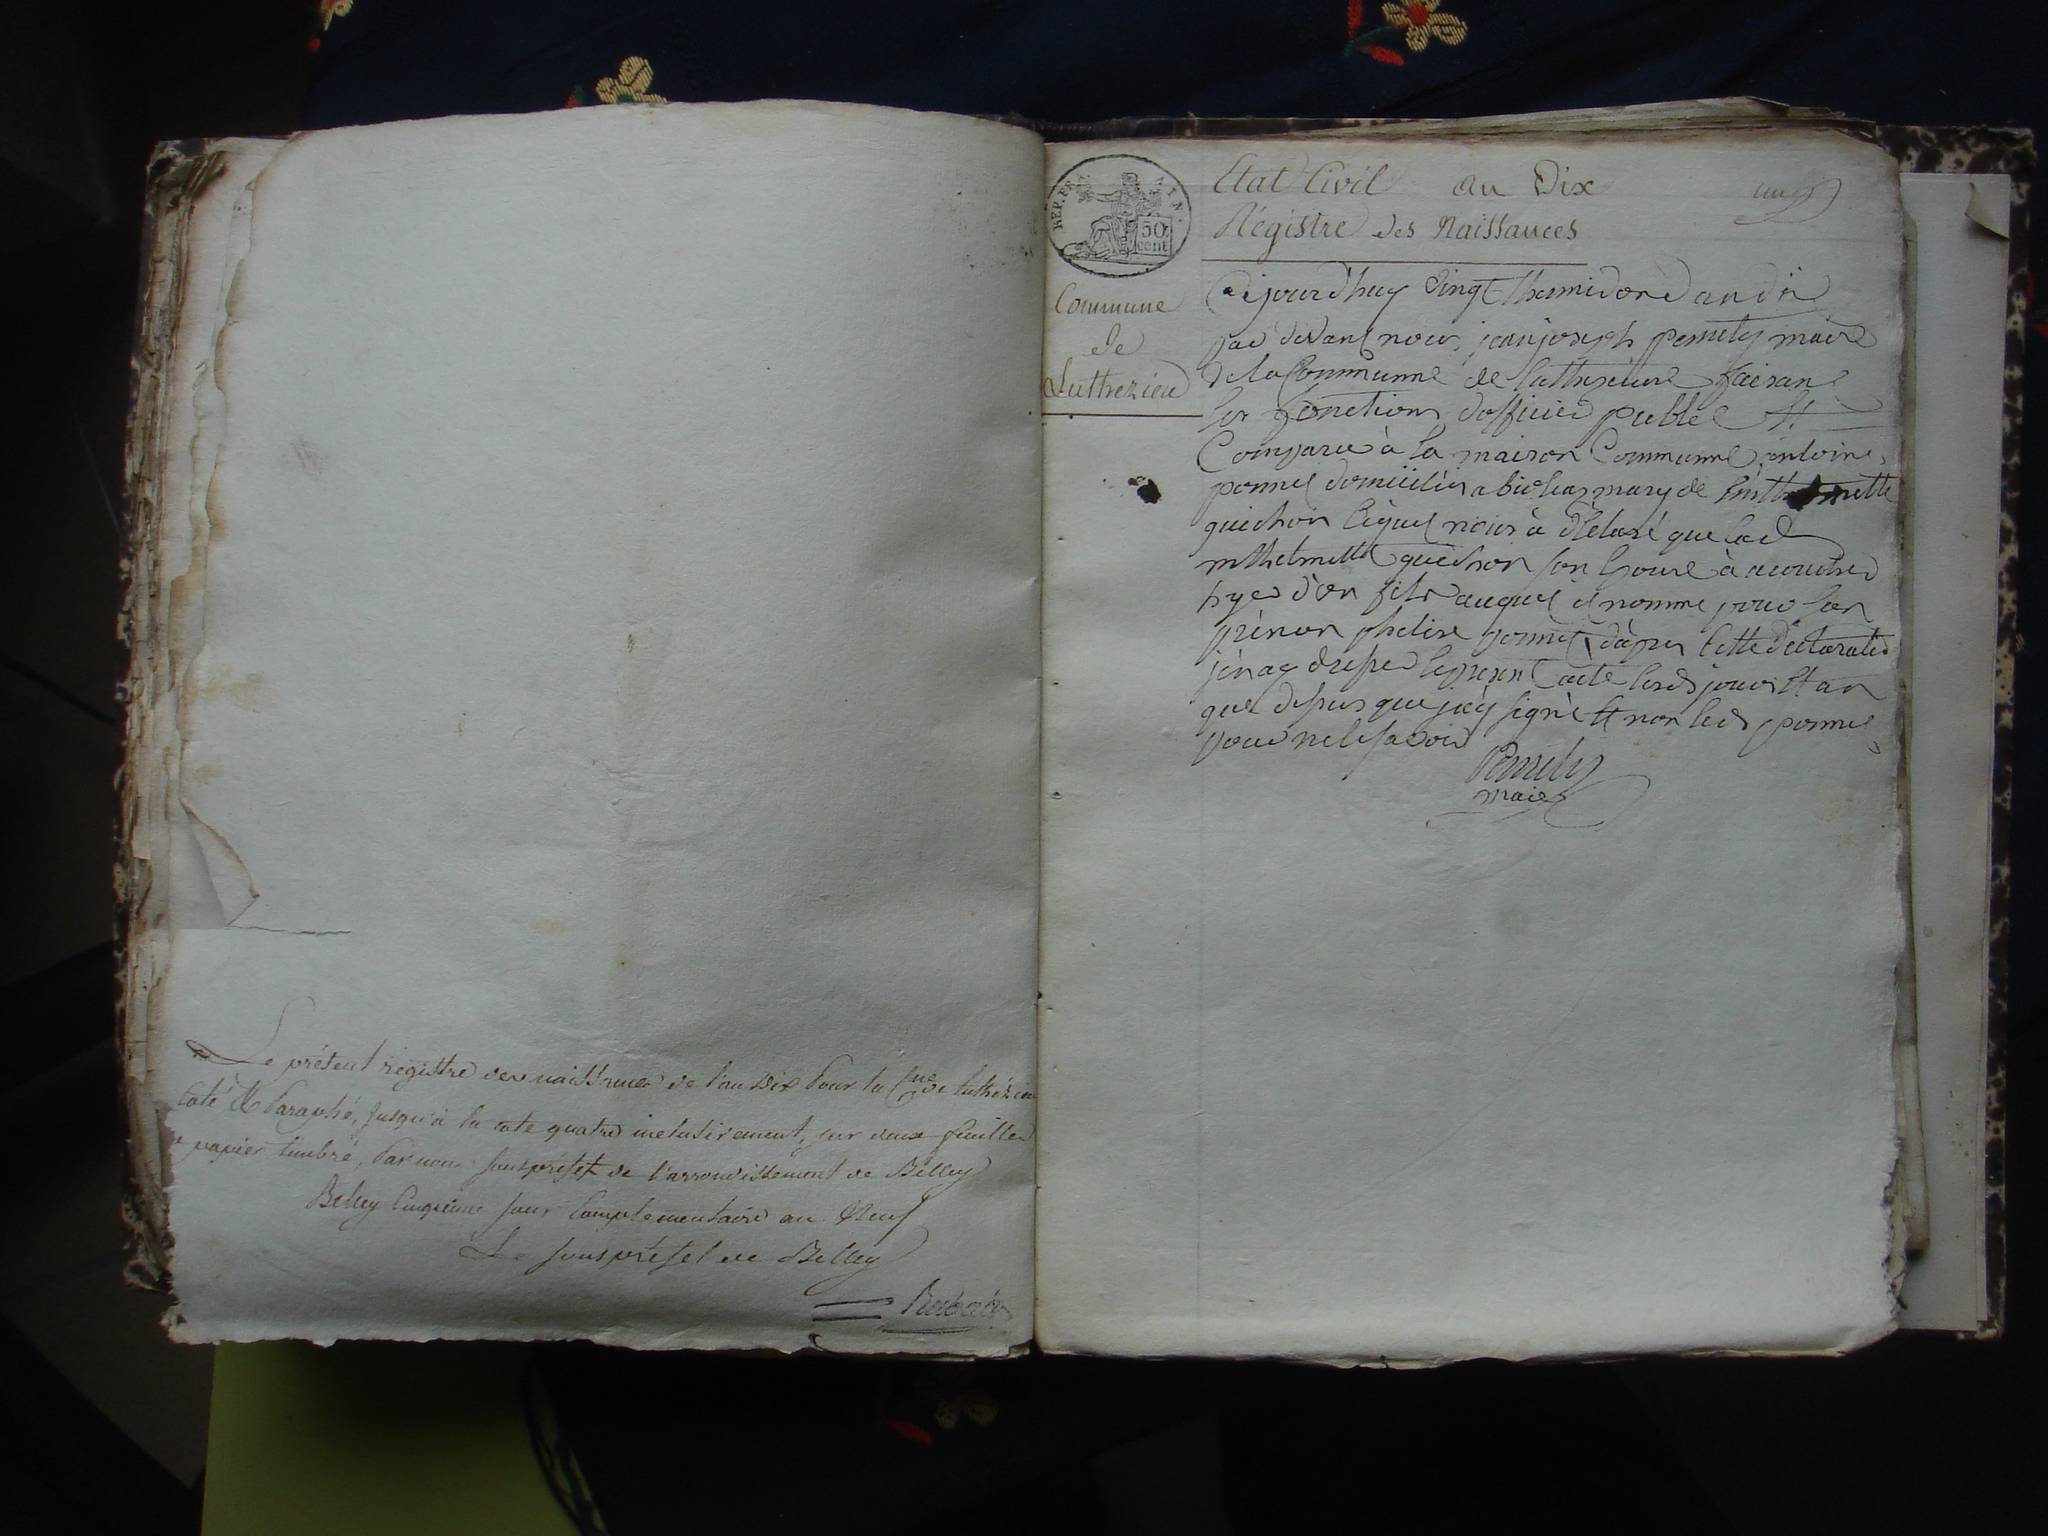 Le présent registre des naissances de l'an Dix Pour la Cne de Luthézieu
coté & Paraphé, jusqu'à la cote quatre inclusivement, sur deux feuilles
papier timbré, Par nous sous préfet de l'arrondissement de Belley
Belley Cinquieme jour Complementaire an Neuf
Le sous préfet de Belley
REP. FRA
50
cent
Commune
de
Luthezieu
Etat Civil an Dix
Régistre des Naissances
jourd'huy vingt thermidor d an dix
par devant nous, jean joseph maire
de la Communne de faisant
les fonctions d'officier public et
Comparu à la maison Communne antoine
ponnet domicilier a mary de
guichon lequel nous à déclaré que lad
guichon son à acouchée
hyer d'un fils auquel il nomme pour son
prénon phelise ponnet d'aprés cette déclaration
j'en ay dressé le present acte lesd jour et an
que desus que j'ay signé et non led ponnet
pour ne le savoir
maire